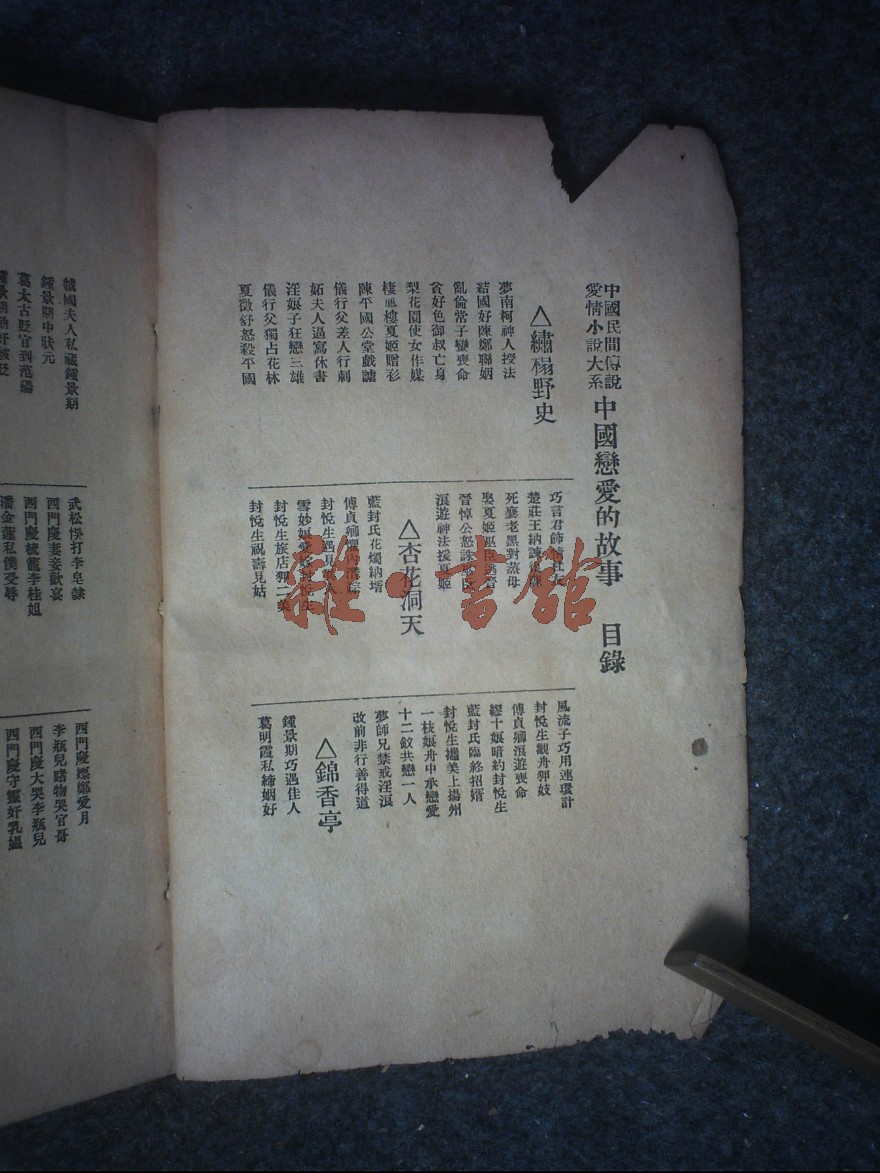 中國民間傳說
愛情小說大系
中國戀愛的故事 目錄
△繡榻野史
夢南柯神人授法
結國好陳鄭聯姻
亂倫常子蠻喪命
貪好色御叔亡身
梨花園使女作媒
棲鳳樓夏姬贈衫
陳平國公堂戲謔
儀行父差人行刺
妬夫人逼寫休書
淫娘子狂戀三雄
儀行父獨占花林
夏徵舒怒殺平國
巧言君師
楚莊王納諫
死襄老黑對蒸母
娶夏姬巫臣逃晉
晉悼公怒誅
滾遊神法援夏姬
△杏花洞天
藍封氏花燭納壻
傅貞卿
封悅生遇
雪妙娘愛
封悅生旅店狎二美
封悅生祝壽見姑
風流子巧用連環計
封悅生觀舟狎妓
傅貞卿滾遊喪命
繆十娘暗約封悅生
藍封氏臨終招婿
封悅生攜美上揚州
一枝娘舟中承戀愛
十二釵共戀一人
夢師兄禁戒淫滾
改前非行善得道
△錦香亭
鍾景期巧遇佳人
葛明霞私締姻好
虢國夫人私藏鍾景期
鍾景期中狀元
葛太古貶官到范陽
武松悞打李皂隸
西門慶妻妾歡宴
西門慶梳籠李桂姐
潘金蓮私僕受辱
西門慶嫖鄭愛月
李瓶兒睹物哭官哥
西門慶大哭李瓶兒
西門慶守靈奸乳媼
雜·書館